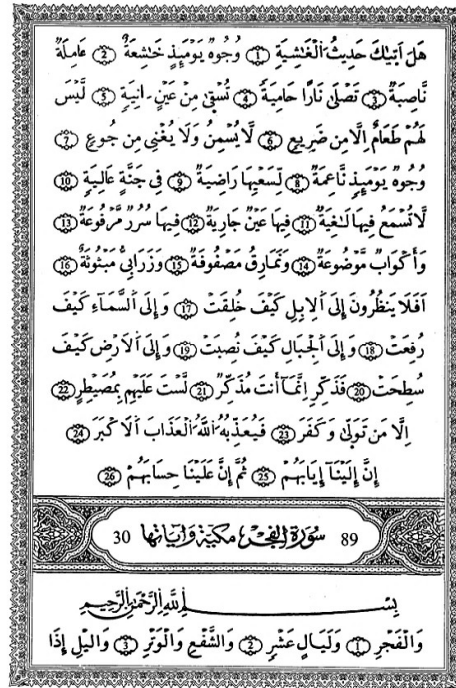 هَلَ اَتٜيٰكَ حَدِيثُ الْغَٰشِيَةِ 1 وُجُوهٌ يَوْمَئِذٍ خَٰشِعَةٌ 2 عَامِلَةٌ
نَّاصِبَةٌ 3 تَصْلَىٰ نَارًا حَامِيَةً 4 تُسْقَىٰ مِنْ عَيْنٍ ـ انِيَةٍ 5 لَّيْسَ
لَهُمْ طَعَامٌ اِلَّا مِن ضَرِيعٍ 6 لَّا يُسْمِنُ وَلَا يُغْنِي مِن جُوعٍ 7
وُجُوهٌ يَوْمَئِذٍ نَّاعِمَةٌ 8 لِّسَعْيِهَا رَاضِيَةٌ 9 فِي جَنَّةٍ عَالِيَةٍ 10
لَّا تُسْمَعُ فِيهَا لَٰغِيَةٌ 11 فِيهَا عَيْنٌ جَارِيَةٌ 12 فِيهَا سُرُرٌ مَّرْفُوعَةٌ 13
وَأَكْوَابٌ مَّوْضُوعَةٌ 14 وَنَمَارِقُ مَصْفُوفَةٌ 15 وَزَرَابِيُّ مَبْثُوثَةٌ 16
اَفَلَا يَنظُرُونَ إِلَى اَلِابِلِ كَيْفَ خُلِقَتْ 17 وَإِلَى السَّمَاءِ كَيْفَ
رُفِعَتْ 18 وَإِلَى الْجِبَالِ كَيْفَ نُصِبَتْ 19 وَإِلَى اَلَارْضِ كَيْفَ
سُطِحَتْ 20 فَذَكِّرِ اِنَّمَا أَنتَ مُذَكِّرٌ 21 لَّسْتَ عَلَيْهِم بِمُصَيْطِرٍ 22
اِلَّا مَن تَوَلَّىٰ وَكَفَرَ 23 فَيُعَذِّبُهُ اللَّهُ الْعَذَابَ اَلَاكْبَرَ 24
إِنَّ إِلَيْنَا إِيَابَهُمْ 25 ثُمَّ إِنَّ عَلَيْنَا حِسَابَهُمْ 26
89 سُورَةُ الْفَجْرِ مَكِّيَّة وَءَايَاتُهَا 30
بِسْمِ اِللَّهِ اِلرَّحْمَٰنِ اِلرَّحِيمِ
وَالْفَجْرِ 1 وَلَيَالٍ عَشْرٍ 2 وَالشَّفْعِ وَالْوَتْرِ 3 وَاليْلِ إِذَا